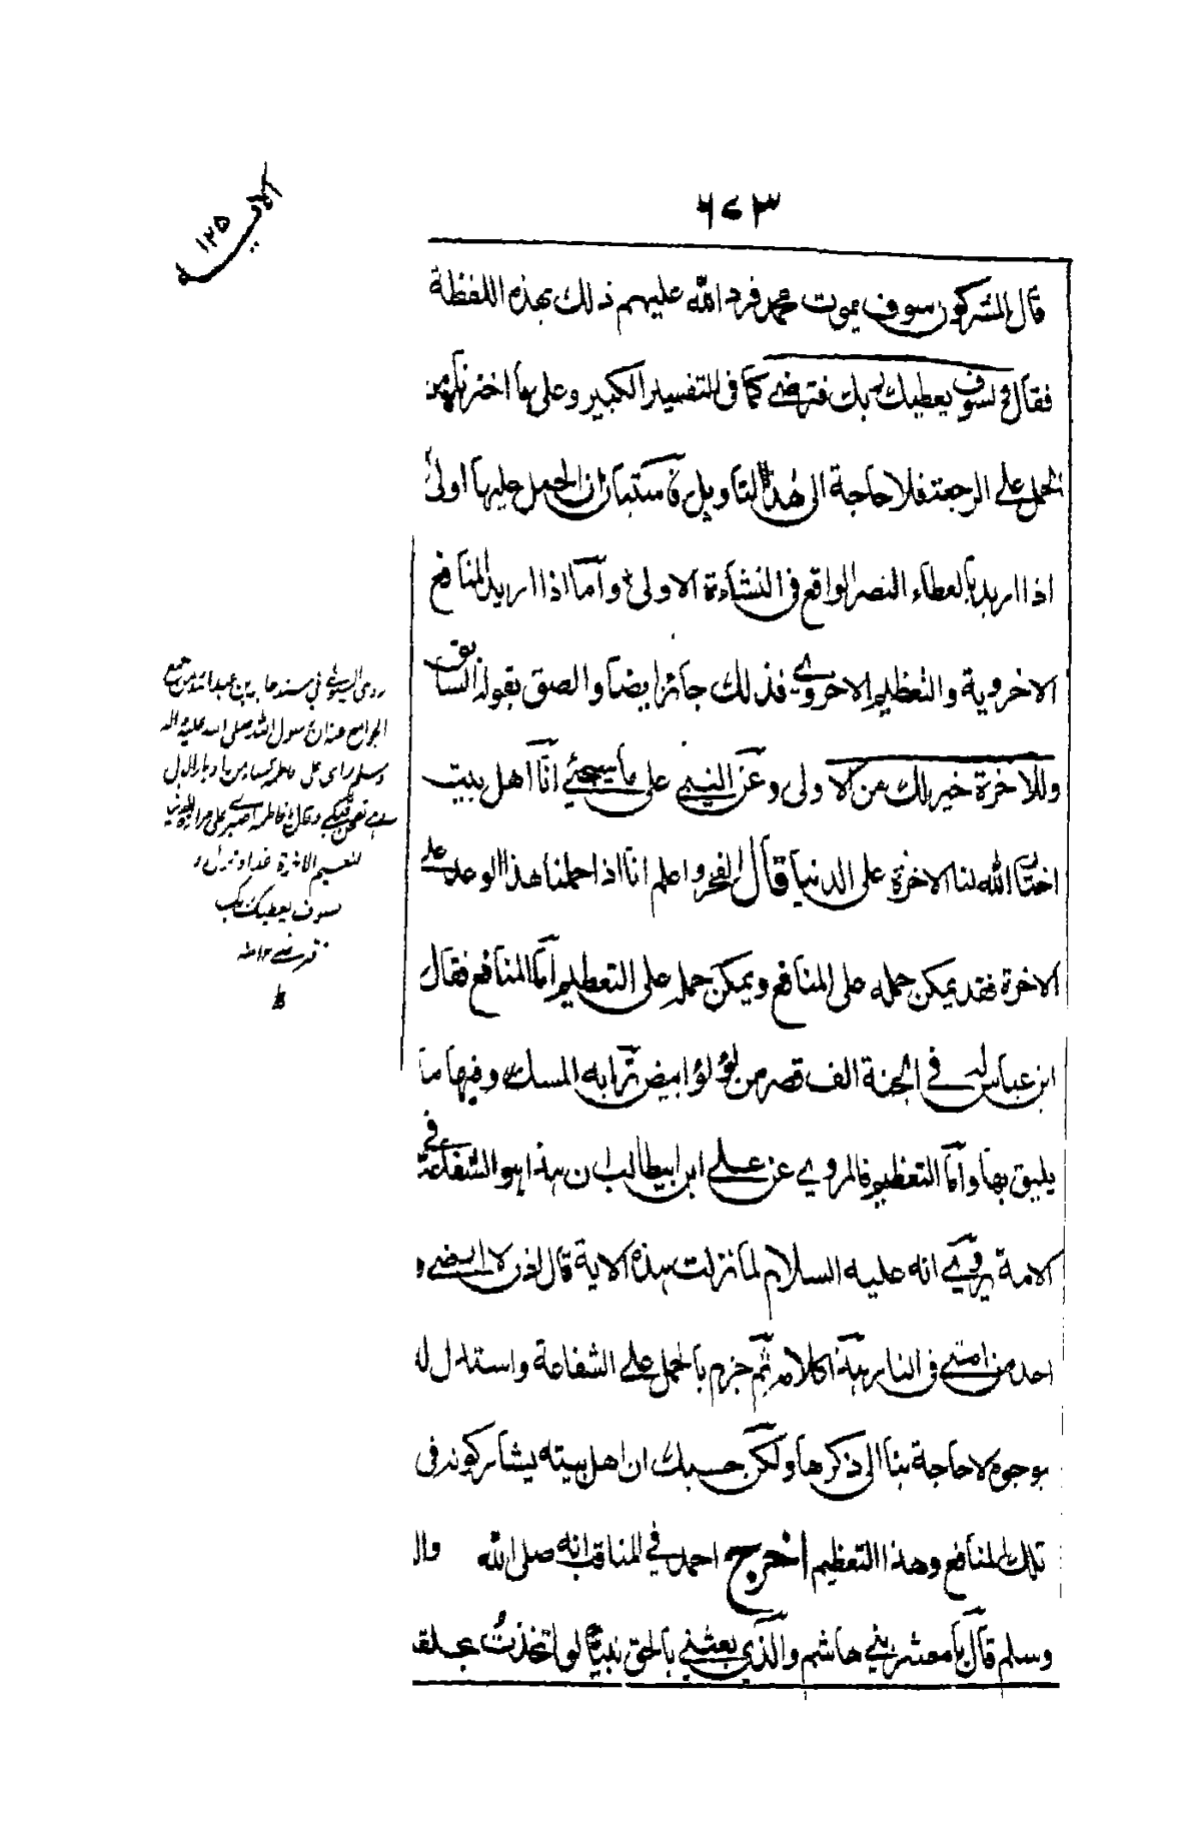 ٦٧٣
الآية ١٢٥
قال المشركون سوف يموت محمد فرد الله عليهم ذلك بهذه اللفظة
فقال ولسوف يعطيك ربك فترضى كما فى التفسير الكبير وعلى ما اخترنا من
الحمل على الرجعة فلا حاجة الى هذا التاويل ان الحمل عليها اولى
اذا اريد بالعطاء النصر الواقع فى النشاءة الاولى واما اذا اريد المنافع
الاخروية والتعظيم الاخروى فذلك جائز ايضا والصق بقوله السابق
وللاخرة خير لك من الاولى وعن النبى على ما سيجئ انا اهل بيت
اختار الله لنا الاخرة على الدنيا قال الفخر واعلم انا اذا حملنا هذا الوعد على
الاخرة فقد يمكن حمله على المنافع ويمكن حمله على التعظيم اما المنافع فقال
ابن عباس له فى الجنة الف قصر من لؤلؤ ابيض ترابه المسك وفيها ما
يليق بها واما التعظيم فالمروي عن على ابن ابيطالب ان هذا هو الشفاعة فى
الامة يروى انه عليه السلام لما نزلت هذه الاية قال اذن لا ارضى و
احد من امتى فى النار هذا كلامه ثم جزم بالحمل على الشفاعة واستدل له
بوجوه لا حاجة بنا الى ذكرها ولكن حسبك ان اهل بيته يشاركونه فى
تلك المنافع وهذا التعظيم اخرج احمد فى المناقب انه صلى الله وال
وسلم قال يا معشر بني هاشم والذى بعثنى بالحق نبيا لو اخذت بحلقة
روى السيوطى في مسند جابر بن عبدالله من جمع
الجوامع عنه ان رسول الله صلى الله عليه واله
وسلم راى على فاطمة كساء من اوبار الابل
وهى تطحن فبكى وقال يا فاطمة اصبرى على مرارة الدنيا
لنعيم الاخرة غدا ونزلت و
لسوف يعطيك ربك
فترضى ١٢ منه